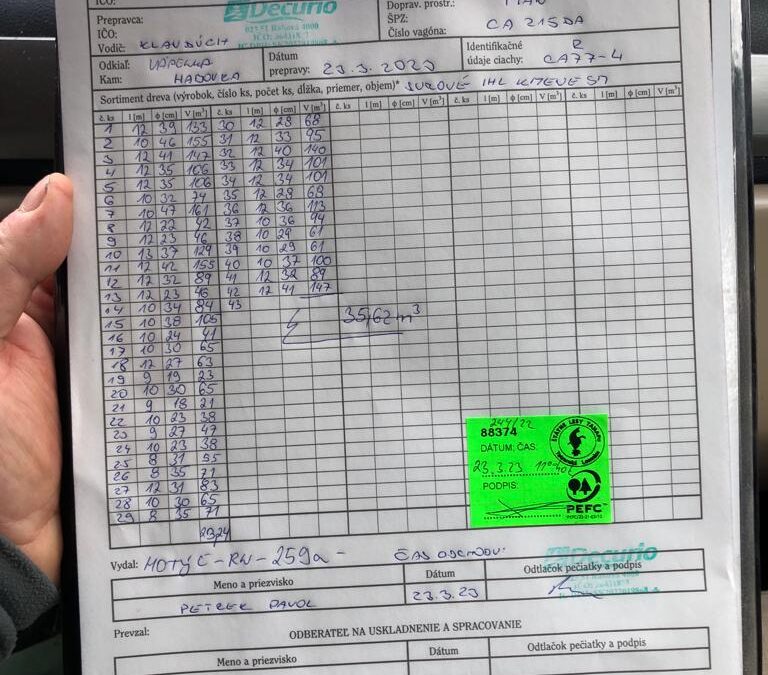 IČO:
Decurio
027 51 Habová 4000
Doprav. prostr.: MAN
Prepravca:
ŠPZ:
IČO:
Číslo vagóna: CA 215DA
Vodič: KLAUDÍCH
Identifikačné
údaje ciachy: CA77-4
Odkiaľ:
Kam: HADOVKA
Dátum
prepravy: 23.3.2023
Sortiment dreva (výrobok, číslo ks, počet ks, dĺžka, priemer, objem)* SUROVÉ IHL KMEVE SM
č. ks l [m] ϕ [cm] V [m³] č. ks l [m] ϕ [cm] V [m³] č. ks l [m] ϕ [cm] V [m³] č. ks l [m] ϕ [cm] V [m³] č. ks l [m] ϕ [cm] V [m³]
1 12 39 133 30 12 28 68
2 10 46 155 31 12 33 95
3 12 41 147 32 12 40 140
4 12 35 106 33 12 34 101
5 12 35 106 34 12 34 101
6 10 32 74 35 12 28 68
7 10 47 161 36 12 36 113
8 12 22 42 37 10 36 94
9 12 23 46 38 10 29 61
10 13 37 129 39 10 29 61
11 12 42 155 40 10 37 100
12 12 32 89 41 12 32 89
13 12 23 46 42 12 41 147
14 10 34 84 43
15 10 38 105
16 10 24 41
17 10 30 65
18 12 27 63
19 9 19 23
20 10 30 65
21 9 18 21
22 10 23 38
23 9 27 47
24 10 23 38
25 8 31 55
26 8 35 71
27 12 31 83
28 10 30 65
29 8 35 71
23,24
35,62 m³
244/22
88374
DÁTUM; ČAS:
23.3.23 11:40
PODPIS:
ŠTÁTNE LESY TANAPU
PEFC
Vydal: MOTYČ-RN-259a-
ČAS ODCHODU:
Decurio
Meno a priezvisko Dátum Odtlačok pečiatky a podpis
PETREK PAVOL 23.3.23
Prevzal: ODBERATEĽ NA USKLADNENIE A SPRACOVANIE
Meno a priezvisko Dátum Odtlačok pečiatky a podpis